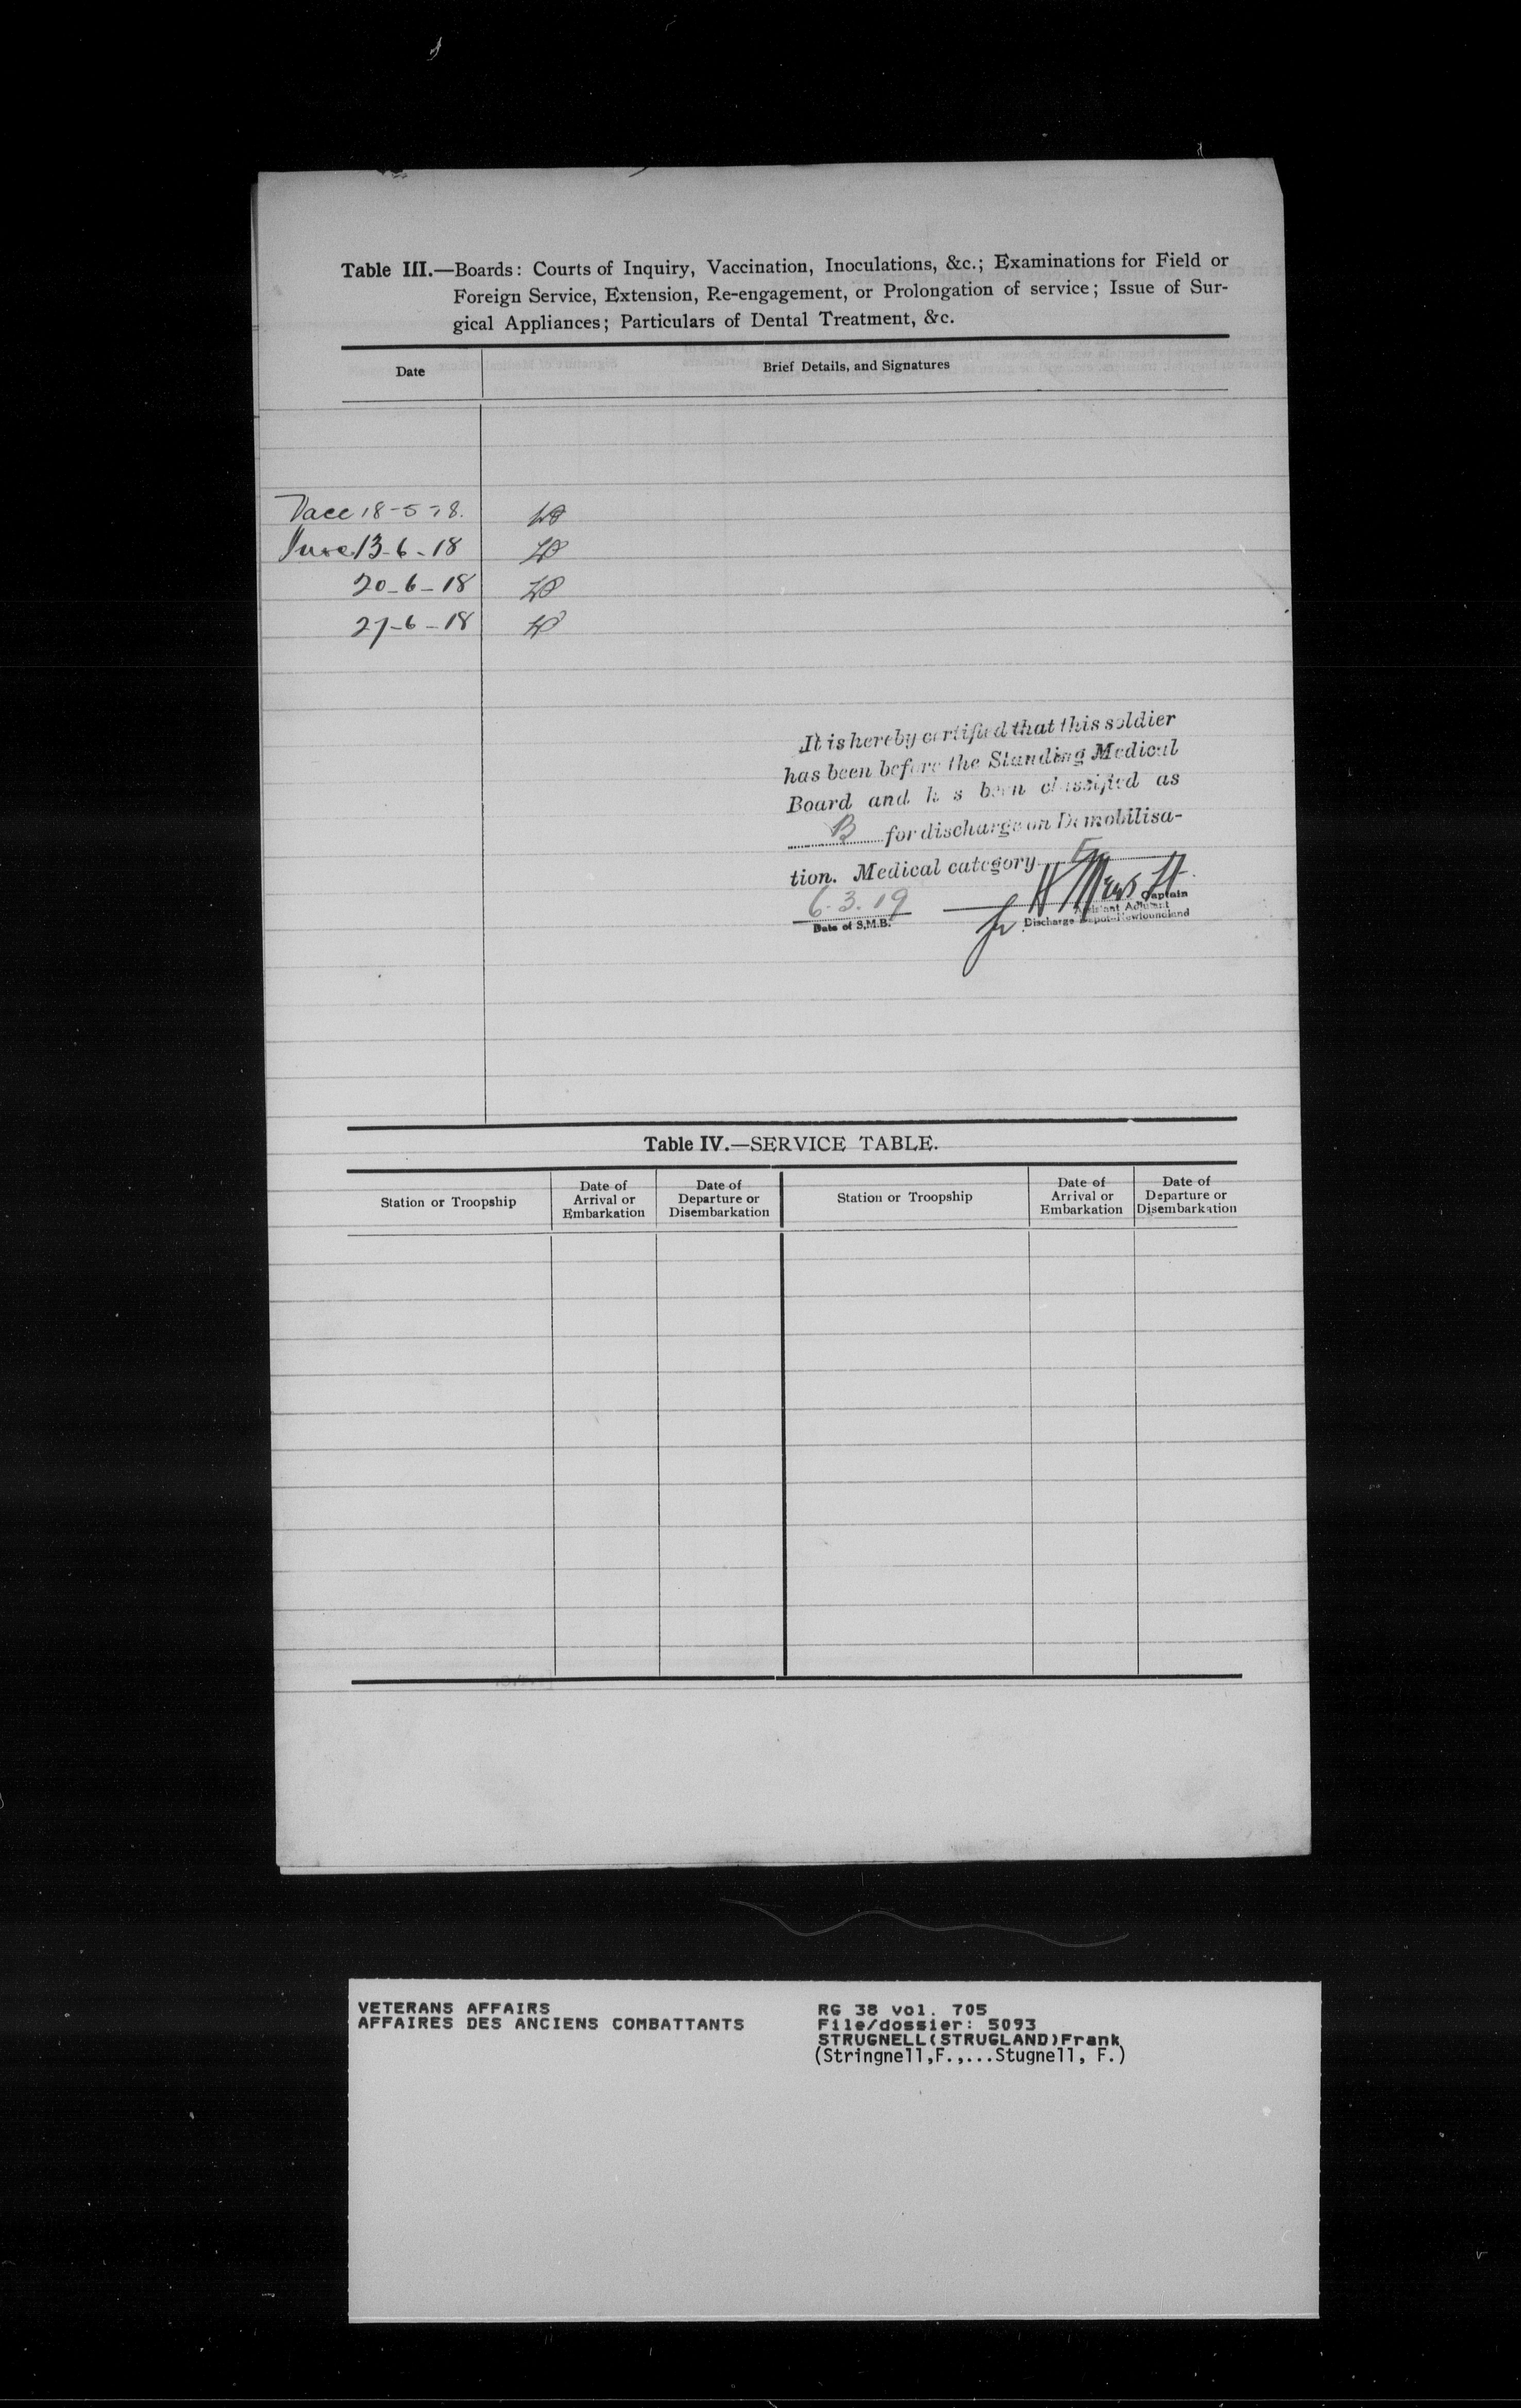 Table III.—Boards: Courts of Inquiry, Vaccination, Inoculations, &c.; Examinations for Field or
Foreign Service, Extension, Re-engagement, or Prolongation of service; Issue of Sur-
gical Appliances; Particulars of Dental Treatment, &c.
Date Brief Details, and Signatures
Vacc 18-5-18.
13-6-18
20-6-18
27-6-18
It is hereby certified that this soldier
has been before the Standing Medical
Board and has been classified as
B for discharge on Demobilisa-
tion. Medical category
6.3.19
Captain
Date of S.M.B.
Assistant Adjutant
Discharge Depot-Newfoundland
Table IV.—SERVICE TABLE.
Station or Troopship
Date of
Arrival or
Embarkation
Date of
Departure or
Disembarkation
Station or Troopship
Date of
Arrival or
Embarkation
Date of
Departure or
Disembarkation
VETERANS AFFAIRS
AFFAIRES DES ANCIENS COMBATTANTS
RG 38 vol. 705
File/dossier: 5093
STRUGNELL(STRUGLAND)Frank
(Stringnell,F.,...Stugnell, F.)